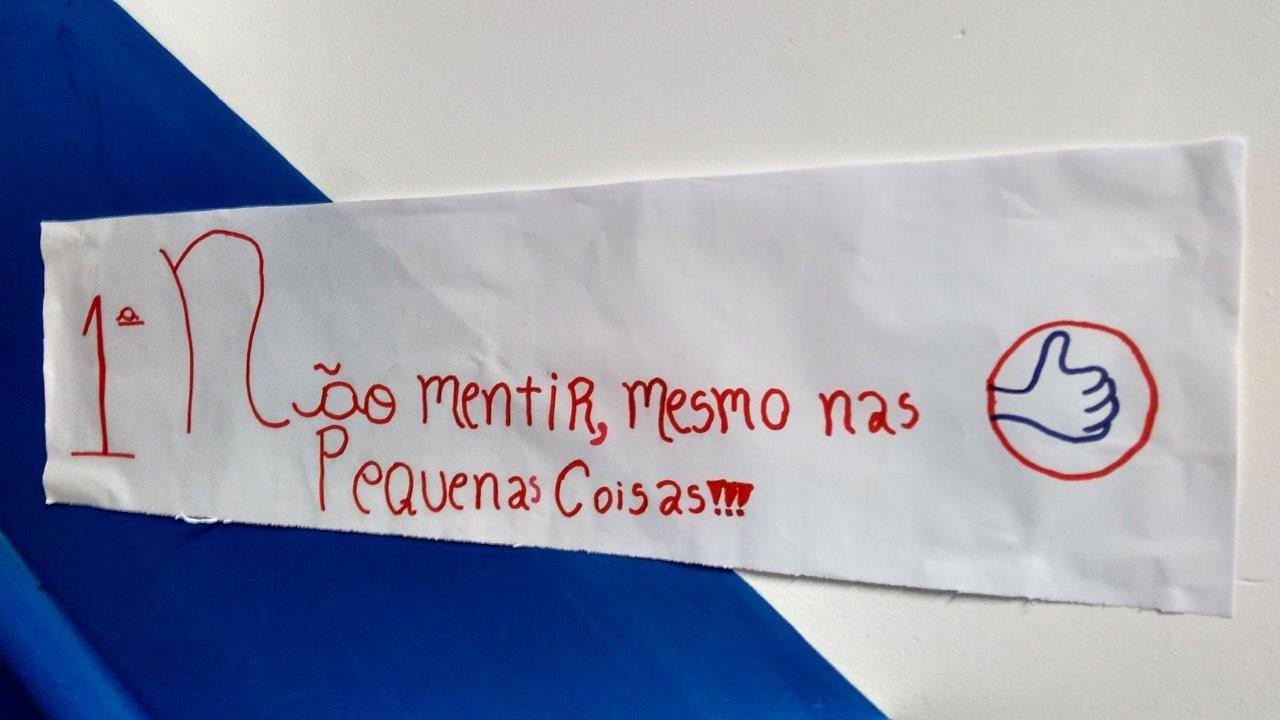 1ª Não mentir, mesmo nas
Pequenas Coisas!!!